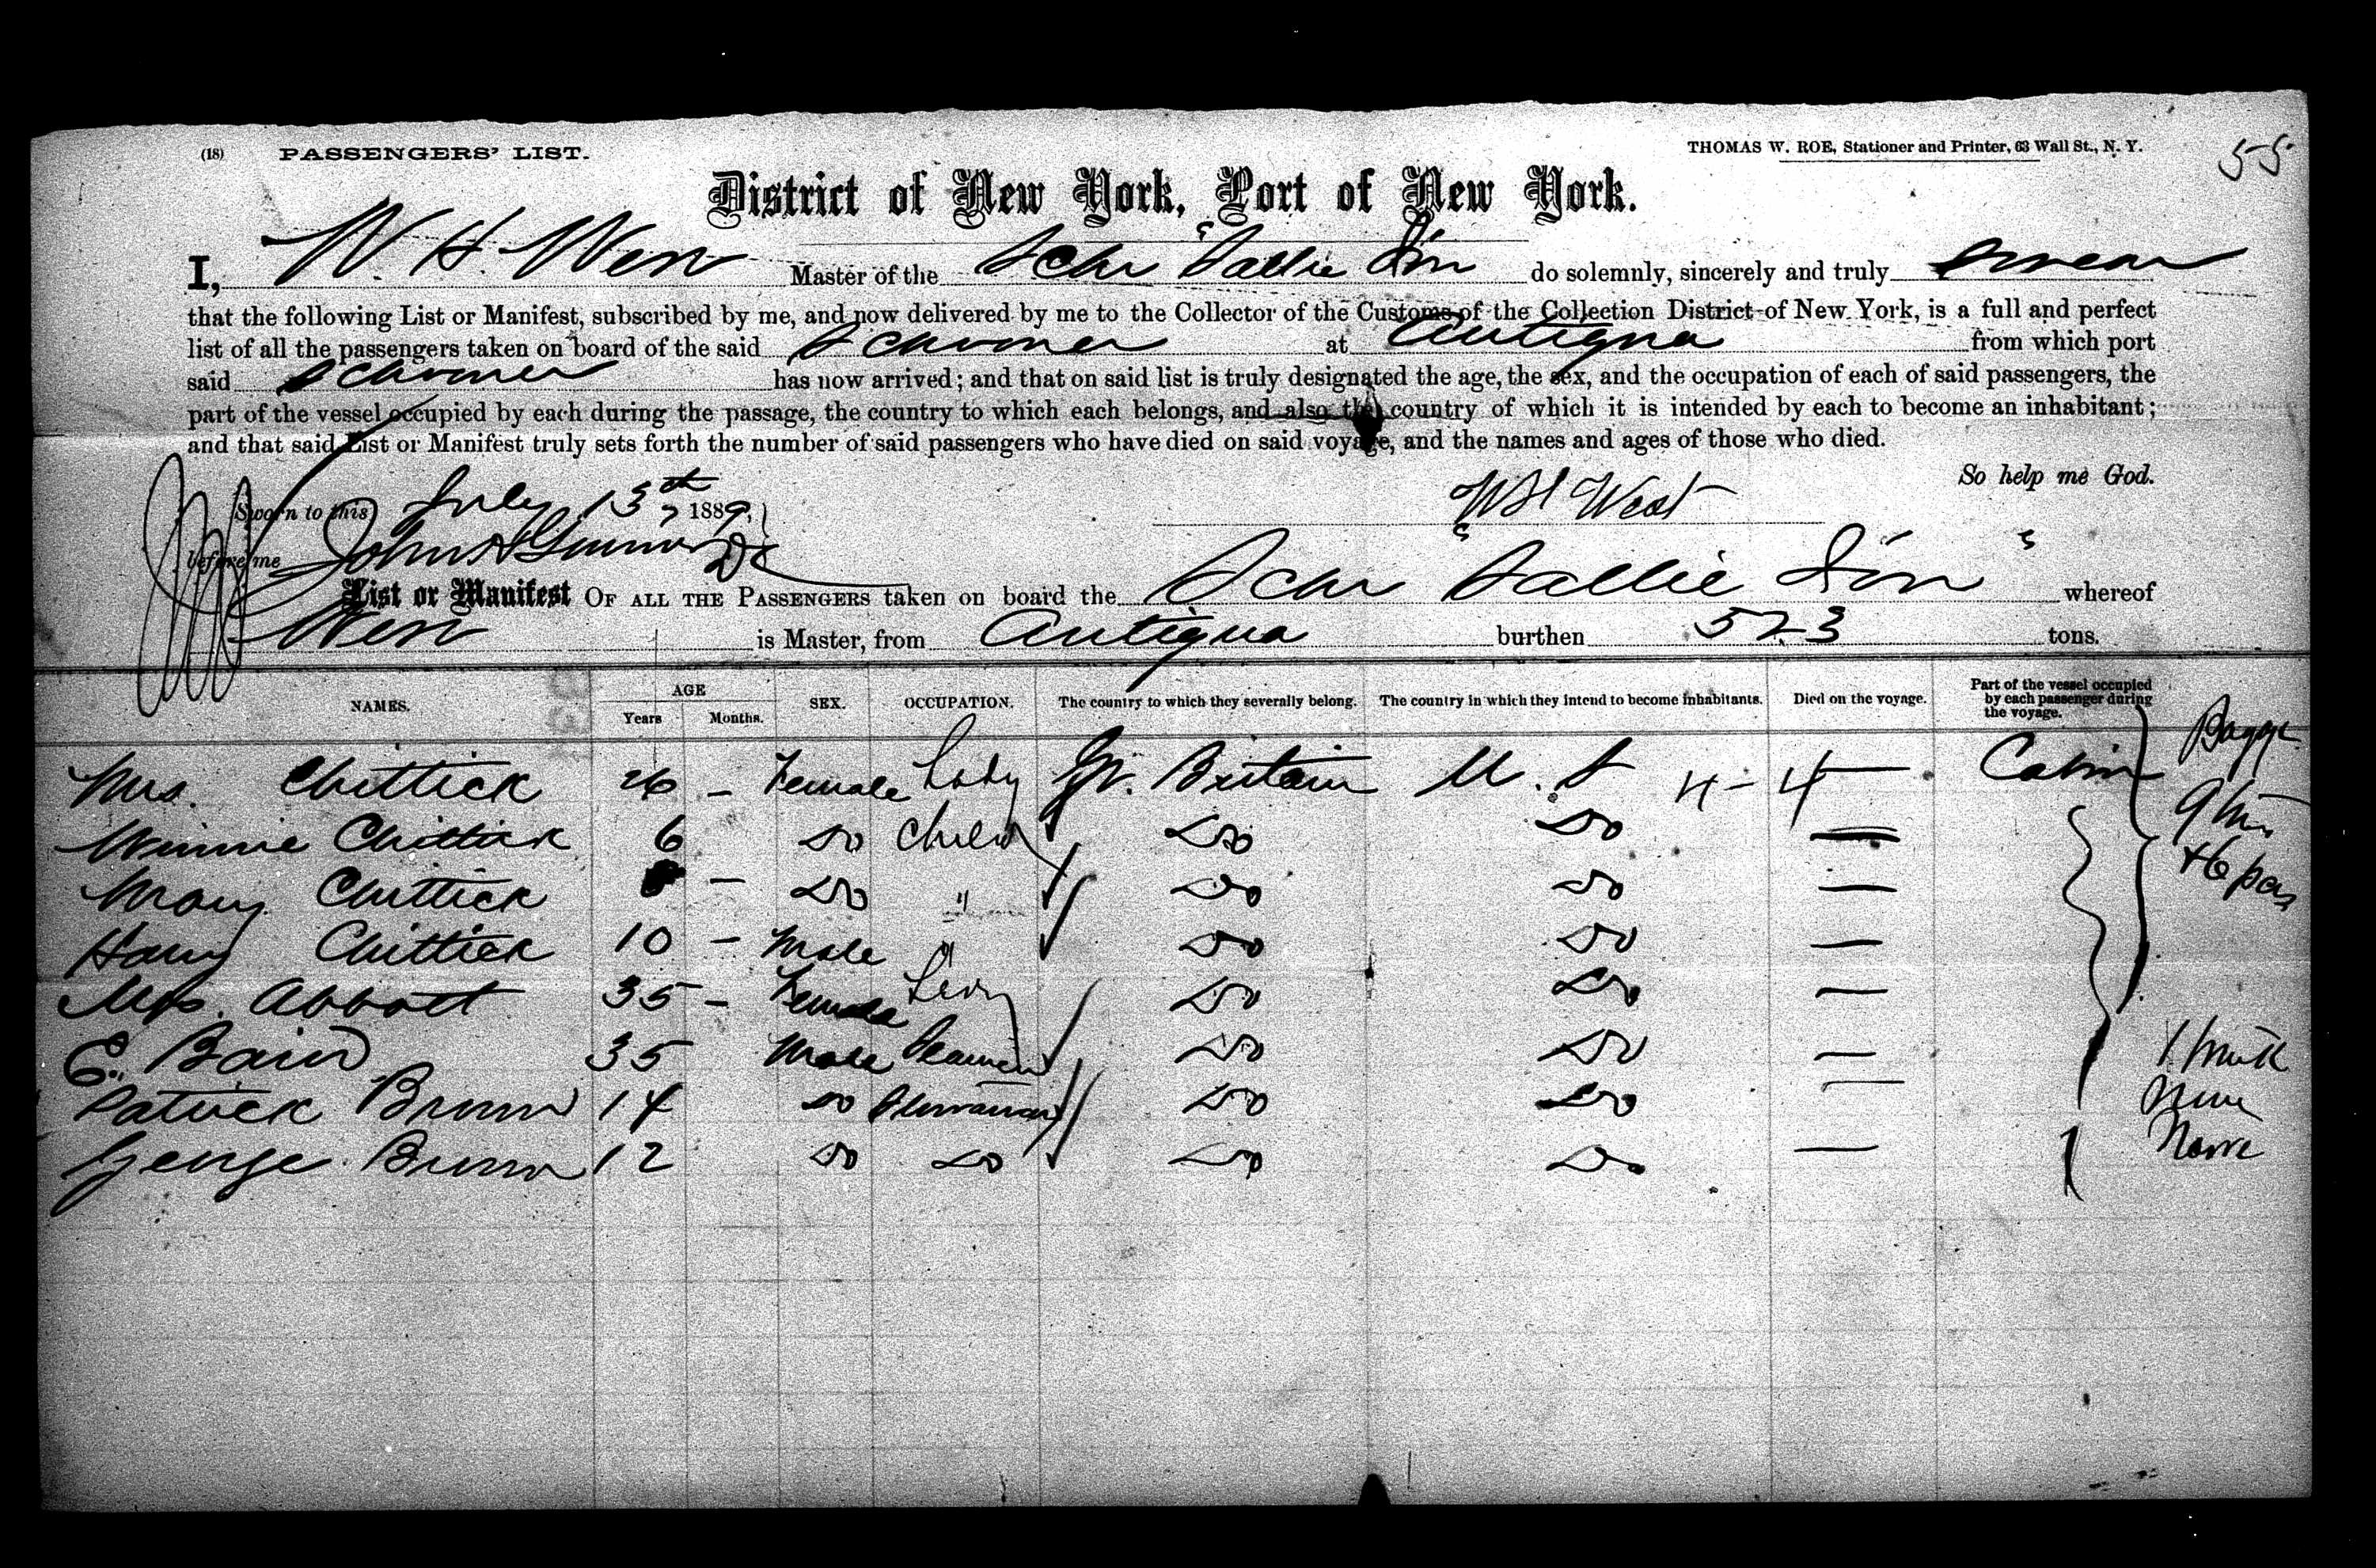 (18) PASSENGERS' LIST. THOMAS W. ROE, Stationer and Printer, 63 Wall St., N. Y. 55
District of New York, Port of New York.
I, W. H. West Master of the Schr Sallie I'on do solemnly, sincerely and truly swear
that the following List or Manifest, subscribed by me, and now delivered by me to the Collector of the Customs of the Collection District of New York, is a full and perfect
list of all the passengers taken on board of the said Schooner at Antigua from which port
said Schooner has now arrived; and that on said list is truly designated the age, the sex, and the occupation of each of said passengers, the
part of the vessel occupied by each during the passage, the country to which each belongs, and also the country of which it is intended by each to become an inhabitant;
and that said List or Manifest truly sets forth the number of said passengers who have died on said voyage, and the names and ages of those who died.
So help me God.
Sworn to this July 13th 1889, WH West
before me John
List or Manifest OF ALL THE PASSENGERS taken on board the Schr Sallie I'on whereof
West is Master, from Antigua burthen 523 tons.
NAMES. AGE Years Months. SEX. OCCUPATION. The country to which they severally belong. The country in which they intend to become inhabitants. Died on the voyage. Part of the vessel occupied by each passenger during the voyage. Bagge
Mrs. Chittick 26 - Female Lady Gt. Britain U. S 4 - 4 — Cabin
Winnie Chittick 6 Do Child Do Do —
Mary Chittick - Do " Do Do —
Harry Chittick 10 - Male " Do Do —
Mrs. Abbott 35 - Female Lady Do Do —
E. Baird 35 Male Seaman Do Do — 1 trunk
Patrick Brown 14 Do Do Do — None
George Brown 12 Do Do Do Do — None